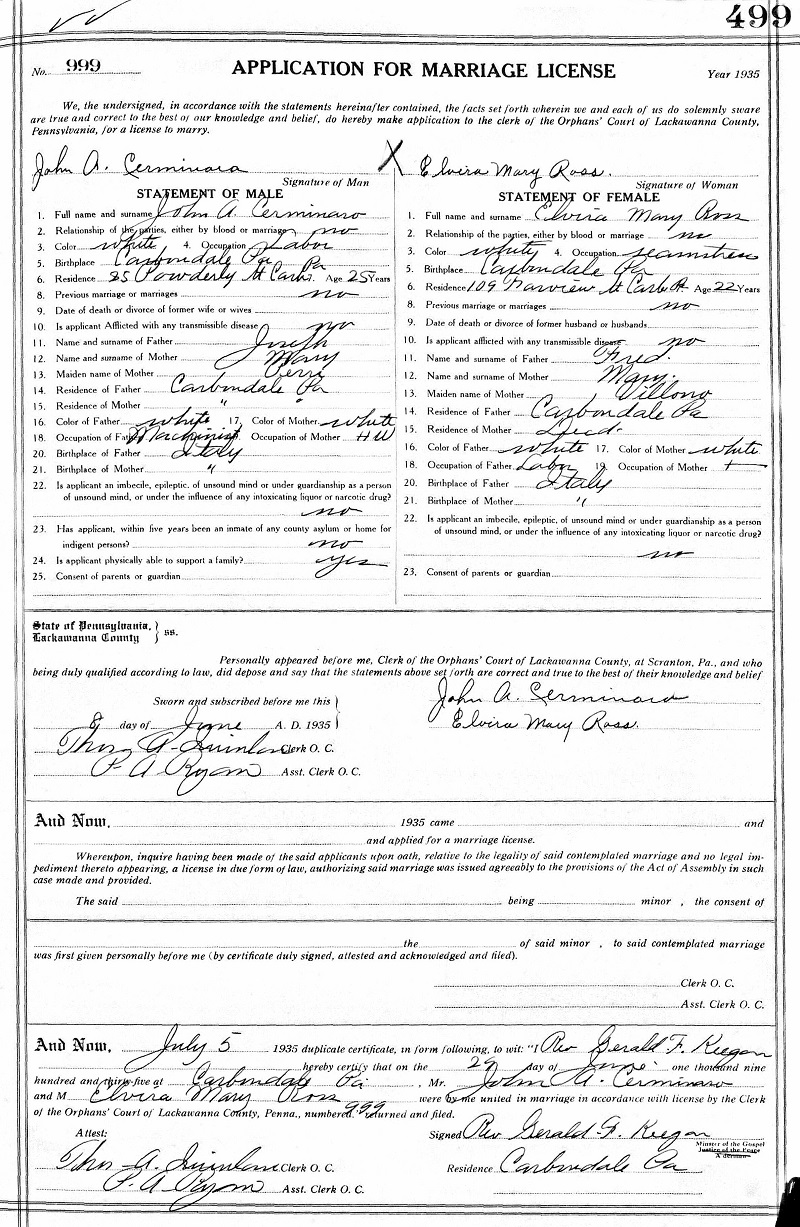 499
No. 999 APPLICATION FOR MARRIAGE LICENSE Year 1935
We, the undersigned, in accordance with the statements hereinafter contained, the facts set forth wherein we and each of us do solemnly sware
are true and correct to the best of our knowledge and belief, do hereby make application to the clerk of the Orphans' Court of Lackawanna County,
Pennsylvania, for a license to marry.
John A. Cerminara X Elvira Mary Ross.
Signature of Man Signature of Woman
STATEMENT OF MALE
1. Full name and surname John A. Cerminaro
2. Relationship of the parties, either by blood or marriage no
3. Color white 4. Occupation Labor
5. Birthplace Carbondale Pa
6. Residence 25 Powderly St Carb. Pa Age 25 Years
8. Previous marriage or marriages no
9. Date of death or divorce of former wife or wives
10. Is applicant Afflicted with any transmissible disease no
11. Name and surname of Father Joseph
12. Name and surname of Mother Mary
13. Maiden name of Mother Perri
14. Residence of Father Carbondale Pa
15. Residence of Mother " "
16. Color of Father white 17. Color of Mother white
18. Occupation of Father Machinist Occupation of Mother HW
20. Birthplace of Father Italy
21. Birthplace of Mother "
22. Is applicant an imbecile, epileptic, of unsound mind or under guardianship as a person
of unsound mind, or under the influence of any intoxicating liquor or narcotic drug?
no
23. Has applicant, within five years been an inmate of any county asylum or home for
indigent persons? no
24. Is applicant physically able to support a family? yes
25. Consent of parents or guardian
STATEMENT OF FEMALE
1. Full name and surname Elvira Mary Ross
2. Relationship of the parties, either by blood or marriage no
3. Color white 4. Occupation seamstress
5. Birthplace Carbondale Pa
6. Residence 109 Farview St Carb Pa Age 22 Years
8. Previous marriage or marriages no
9. Date of death or divorce of former husband or husbands
10. Is applicant afflicted with any transmissible disease no
11. Name and surname of Father Fred.
12. Name and surname of Mother Mary.
13. Maiden name of Mother Villono
14. Residence of Father Carbondale Pa
15. Residence of Mother Dead.
16. Color of Father white 17. Color of Mother white
18. Occupation of Father Labor 19. Occupation of Mother
20. Birthplace of Father Italy
21. Birthplace of Mother "
22. Is applicant an imbecile, epileptic, of unsound mind or under guardianship as a person
of unsound mind, or under the influence of any intoxicating liquor or narcotic drug?
no
23. Consent of parents or guardian
State of Pennsylvania, } ss.
Lackawanna County
Personally appeared before me, Clerk of the Orphans' Court of Lackawanna County, at Scranton, Pa., and who
being duly qualified according to law, did depose and say that the statements above set forth are correct and true to the best of their knowledge and belief
Sworn and subscribed before me this John A. Cerminaro
8 day of June A. D. 1935 Elvira Mary Ross.
Thos A. Quinlan Clerk O. C.
P. A. Ryan Asst. Clerk O. C.
And Now, 1935 came and
and applied for a marriage license.
Whereupon, inquire having been made of the said applicants upon oath, relative to the legality of said contemplated marriage and no legal im-
pediment thereto appearing, a license in due form of law, authorizing said marriage was issued agreeably to the provisions of the Act of Assembly in such
case made and provided.
The said being minor , the consent of
the of said minor , to said contemplated marriage
was first given personally before me (by certificate duly signed, attested and acknowledged and filed).
Clerk O. C.
Asst. Clerk O. C.
And Now, July 5 1935 duplicate certificate, in form following, to wit: "I Rev Gerald F. Keegan
hereby certify that on the 29 day of June one thousand nine
hundred and thirty-five at Carbondale Pa , Mr. John A. Cerminaro
and M Elvira Mary Ross were by me united in marriage in accordance with license by the Clerk
of the Orphans' Court of Lackawanna County, Penna., numbered 999 returned and filed.
Attest: Signed Rev Gerald F. Keegan
Minister of the Gospel
Justice of the Peace
Alderman
Thos A. Quinlan Clerk O. C. Residence Carbondale Pa
P. A. Ryan Asst. Clerk O. C.